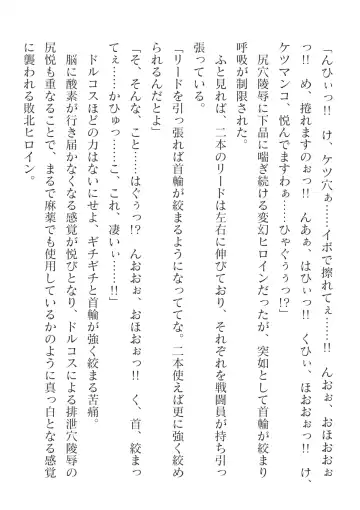 「んひぃっ!!　け、ケツ穴ぁ……イボで擦れてぇ……!!　んおぉ、おほおぉぉ
っ!!　め、捲れますのぉっ!!　んあぁ、はひぃっ!!　くひぃ、ほおおぉっ!!　け、
ケツマンコ、悦んでますわぁ……ひゃぐぅぅっ!?」
　尻穴陵辱に下品に喘ぎ続ける変幻ヒロインだったが、突如として首輪が絞まり
呼吸が制限された。
　ふと見れば、二本のリードは左右に伸びており、それぞれを戦闘員が持ち引っ
張っている。
「リードを引っ張れば首輪が絞まるようになっててな。二本使えば更に強く絞め
られるんだとよ」
「そ、そんな、こと……はぐぅっ!?　んおおぉ、おほおぉっ!!　く、首、絞まっ
てぇ……かひゅっ……こ、これ、凄いぃ……!!」
　ドルコスほどの力はないにせよ、ギチギチと首輪が強く絞まる苦痛。
　脳に酸素が行き届かなくなる感覚が悦びとなり、ドルコスによる排泄穴陵辱の
尻悦も重なることで、まるで麻薬でも使用しているかのように真っ白となる感覚
に襲われる敗北ヒロイン。